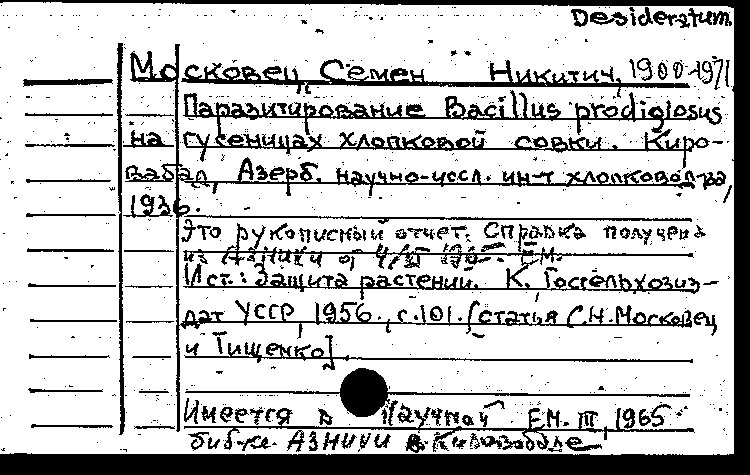 Desideratum
Московец, Семен Никитич, 1900-1971
Паразитирование Bacillus prodigiosus
на гусеницах хлопковой совки. Киро-
вабад, Азерб. научно-иссл. ин-т хлопковод-ва,
1936.
Это рукописный отчет. Справка получена
из АзНИХИ от 4/VI 1965. Е.М.
Ист.: Защита растений. К. Госсельхозиз-
дат УССР, 1956., с.101. [статья С.Н. Московец
и Тищенко].
Имеется в Научной Е.М. III, 1965
биб-ке АЗНИХИ в Кировабаде